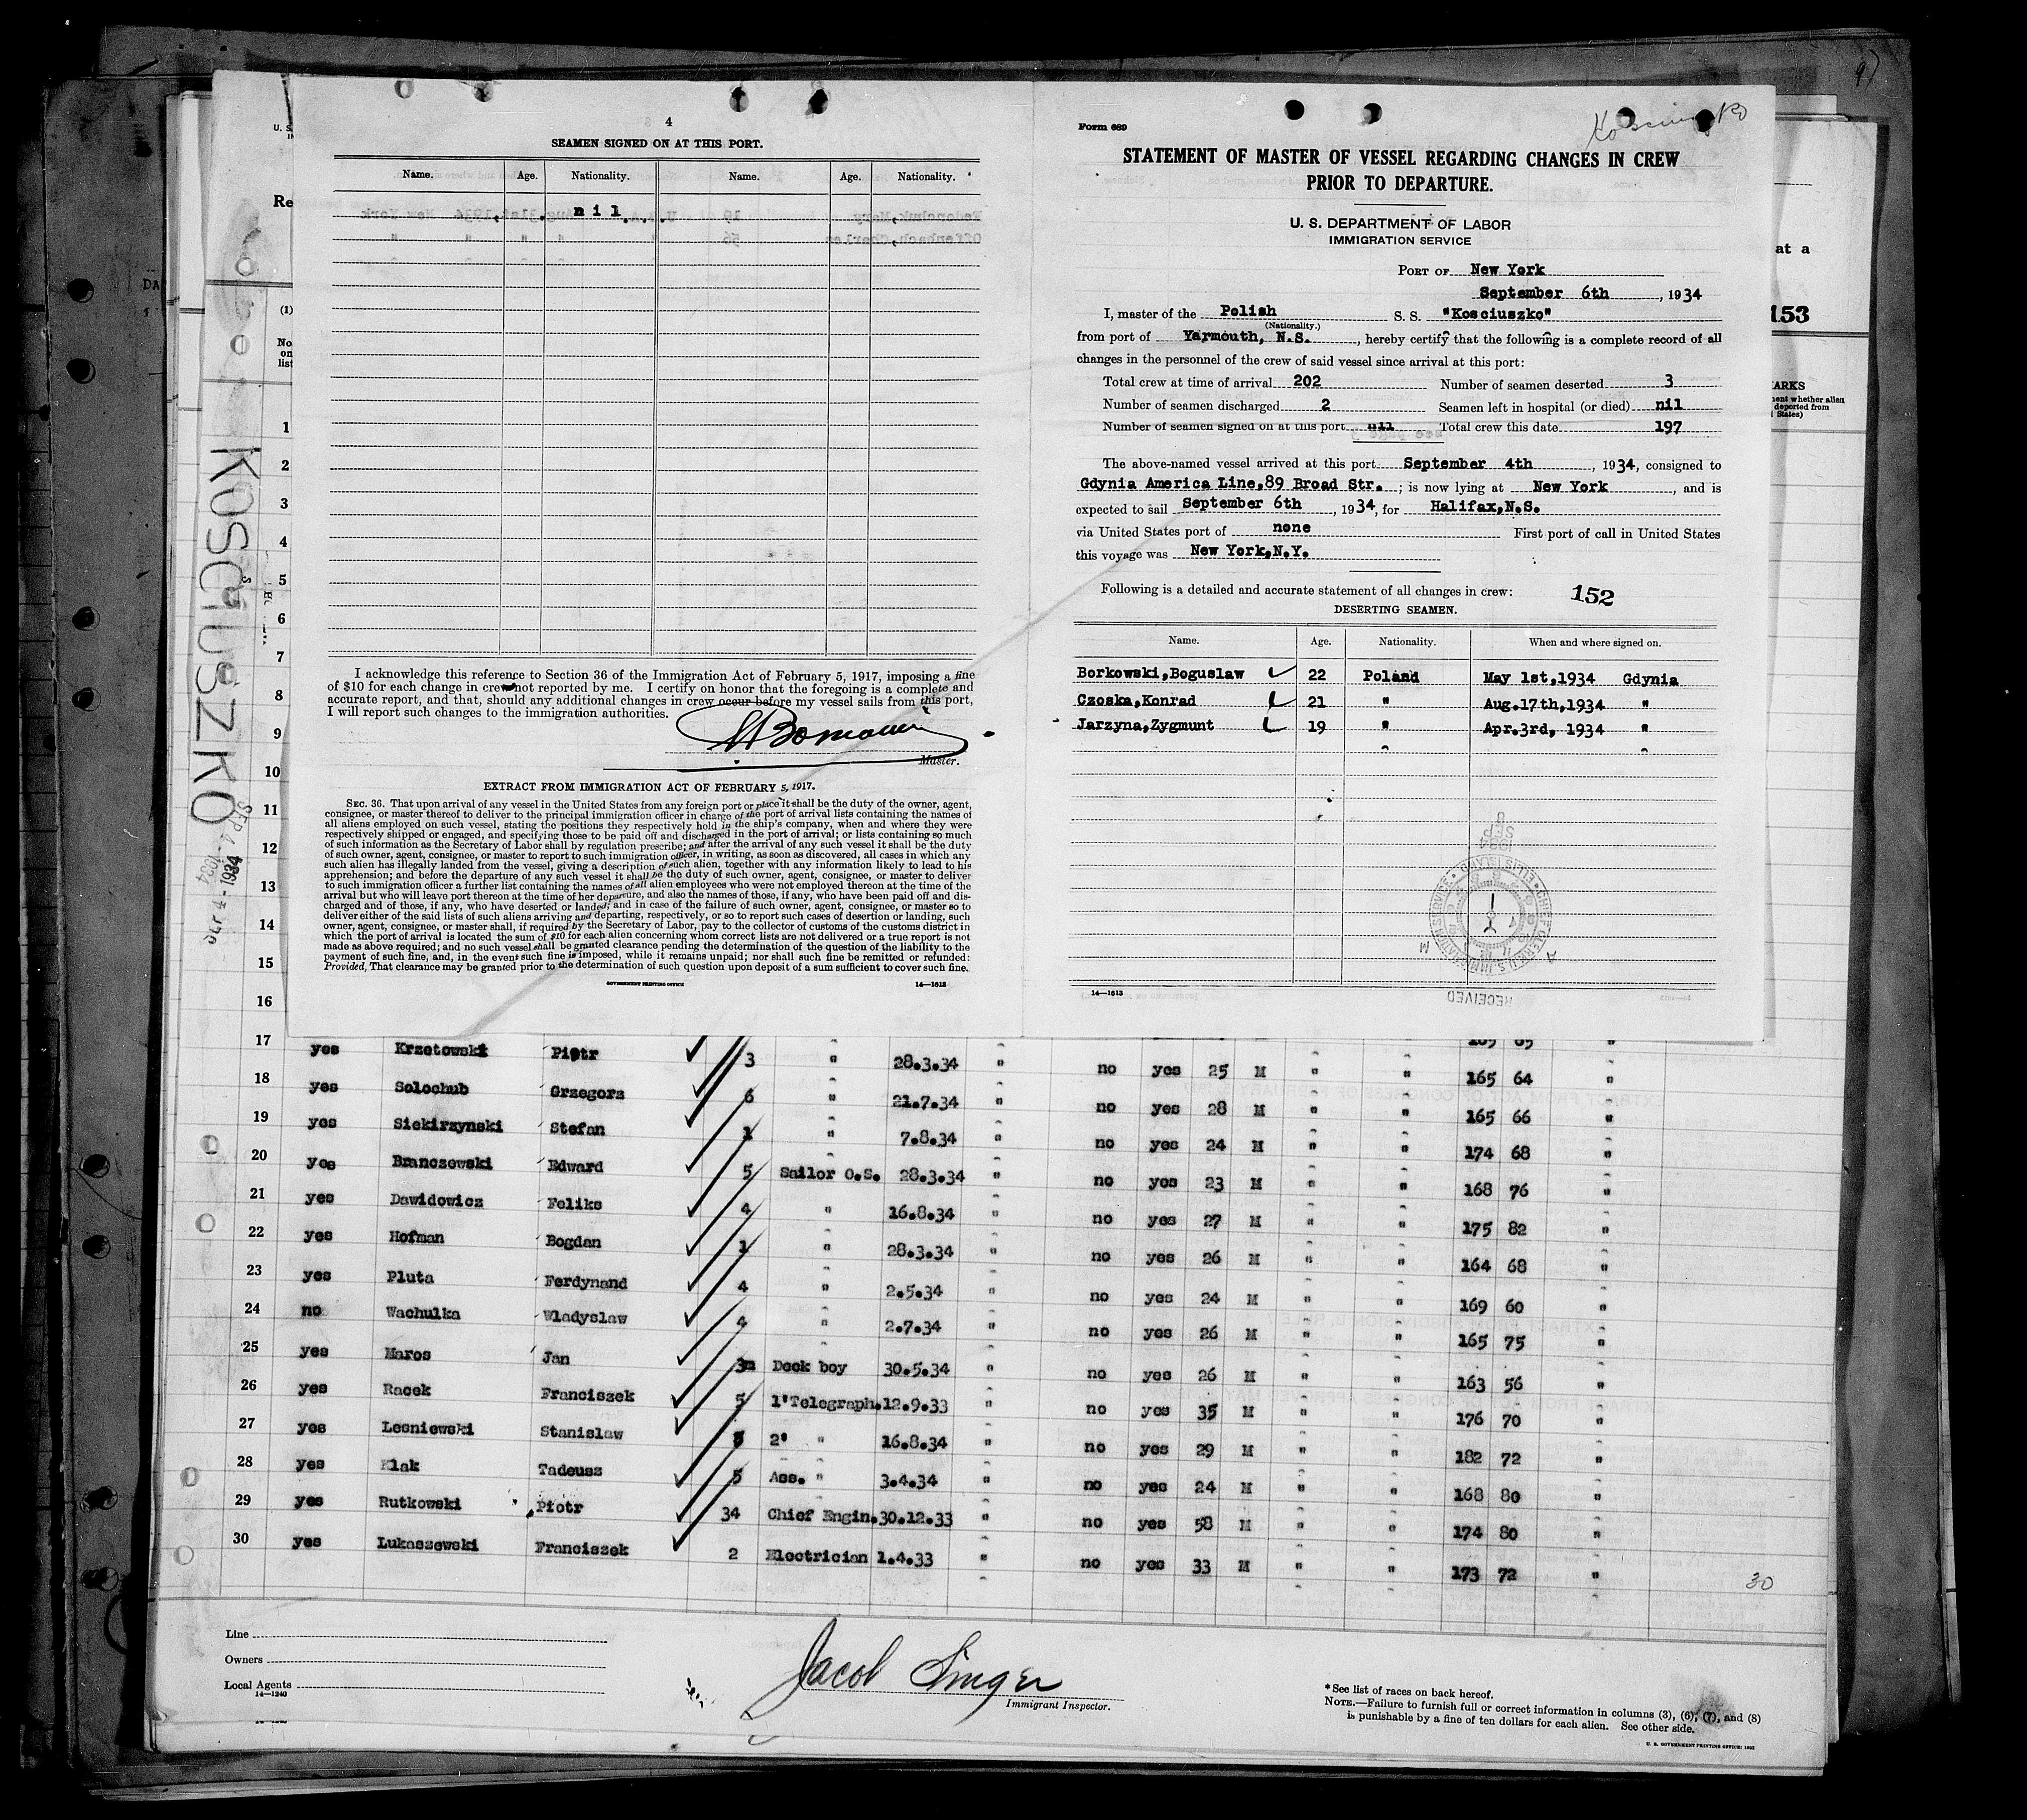 4
SEAMEN SIGNED ON AT THIS PORT.
Name. Age. Nationality. Name. Age. Nationality.
nil
I acknowledge this reference to Section 36 of the Immigration Act of February 5, 1917, imposing a fine
of $10 for each change in crew not reported by me. I certify on honor that the foregoing is a complete and
accurate report, and that, should any additional changes in crew occur before my vessel sails from this port,
I will report such changes to the immigration authorities.
Master.
EXTRACT FROM IMMIGRATION ACT OF FEBRUARY 5, 1917.
SEC. 36. That upon arrival of any vessel in the United States from any foreign port or place it shall be the duty of the owner, agent,
consignee, or master thereof to deliver to the principal immigration officer in charge of the port of arrival lists containing the names of
all aliens employed on such vessel, stating the positions they respectively hold in the ship's company, when and where they were
respectively shipped or engaged, and specifying those to be paid off and discharged in the port of arrival; or lists containing so much
of such information as the Secretary of Labor shall by regulation prescribe; and after the arrival of any such vessel it shall be the duty
of such owner, agent, consignee, or master to report to such immigration officer, in writing, as soon as discovered, all cases in which any
such alien has illegally landed from the vessel, giving a description of such alien, together with any information likely to lead to his
apprehension; and before the departure of any such vessel it shall be the duty of such owner, agent, consignee, or master to deliver
to such immigration officer a further list containing the names of all alien employees who were not employed thereon at the time of the
arrival but who will leave port thereon at the time of her departure, and also the names of those, if any, who have been paid off and dis-
charged and of those, if any, who have deserted or landed; and in case of the failure of such owner, agent, consignee, or master so to
deliver either of the said lists of such aliens arriving and departing, respectively, or so to report such cases of desertion or landing, such
owner, agent, consignee, or master shall, if required by the Secretary of Labor, pay to the collector of customs of the customs district in
which the port of arrival is located the sum of $10 for each alien concerning whom correct lists are not delivered or a true report is not
made as above required; and no such vessel shall be granted clearance pending the determination of the question of the liability to the
payment of such fine, and, in the event such fine is imposed, while it remains unpaid; nor shall such fine be remitted or refunded:
Provided, That clearance may be granted prior to the determination of such question upon deposit of a sum sufficient to cover such fine.
GOVERNMENT PRINTING OFFICE 14—1613
Form 689
Kosciuszko
STATEMENT OF MASTER OF VESSEL REGARDING CHANGES IN CREW
PRIOR TO DEPARTURE.
U. S. DEPARTMENT OF LABOR
IMMIGRATION SERVICE
PORT OF New York
September 6th, 1934
I, master of the Polish S. S. "Kosciuszko"
(Nationality.)
from port of Yarmouth, N.S., hereby certify that the following is a complete record of all
changes in the personnel of the crew of said vessel since arrival at this port:
Total crew at time of arrival 202 Number of seamen deserted 3
Number of seamen discharged 2 Seamen left in hospital (or died) nil
Number of seamen signed on at this port nil Total crew this date 197
The above-named vessel arrived at this port September 4th, 1934, consigned to
Gdynia America Line,89 Broad Str. ; is now lying at New York, and is
expected to sail September 6th, 1934, for Halifax,N.S.
via United States port of none First port of call in United States
this voyage was New York,N.Y.
Following is a detailed and accurate statement of all changes in crew: 152
DESERTING SEAMEN.
Name. Age. Nationality. When and where signed on.
Borkowski,Boguslaw 22 Poland May 1st,1934 Gdynia
Czoska,Konrad 21 " Aug.17th,1934 "
Jarzyna,Zygmunt 19 " Apr.3rd, 1934 "
14—1613
RECEIVED
at a
153
KOSCIUSZKO
SEP 4 - 1934
1
2
3
4
5
6
7
8
9
10
11
12
13
14
15
16
17 yes Krzetowski Piotr 3 " 28.3.34 " no yes 25 M " " 165 64 "
18 yes Solochub Grzegorz 6 " 21.7.34 " no yes 28 M " " 165 66 "
19 yes Siekirzynski Stefan 1 " 7.8.34 " no yes 24 M " " 174 68 "
20 yes Branczewski Edward 5 Sailor O.S. 28.3.34 " no yes 23 M " " 168 76 "
21 yes Dawidowicz Feliks 4 " 16.8.34 " no yes 27 M " " 175 82 "
22 yes Hofman Bogdan 1 " 28.3.34 " no yes 26 M " " 164 68 "
23 yes Pluta Ferdynand 4 " 2.5.34 " no yes 24 M " " 169 60 "
24 no Wachulka Wladyslaw 4 " 2.7.34 " no yes 26 M " " 165 75 "
25 yes Maros Jan 3m Deck boy 30.5.34 " no yes 26 M " " 163 56 "
26 yes Racek Franciszek 5 1'Telegraph. 12.9.33 " no yes 35 M " " 176 70 "
27 yes Lesniewski Stanislaw 2' " 16.8.34 " no yes 29 M " " 182 72 "
28 yes Klak Tadeusz 5 Ass. " 3.4.34 " no yes 24 M " " 168 80 "
29 yes Rutkowski Piotr 34 Chief Engin. 30.12.33 " no yes 58 M " " 174 80 "
30 yes Lukaszewski Franciszek 2 Electrician 1.4.33 " no yes 33 M " " 173 72 "
30
Line
Owners
Local Agents
14—1240
Jacob Singer
Immigrant Inspector.
* See list of races on back hereof.
NOTE.—Failure to furnish full or correct information in columns (3), (6), (7), and (8)
is punishable by a fine of ten dollars for each alien. See other side.